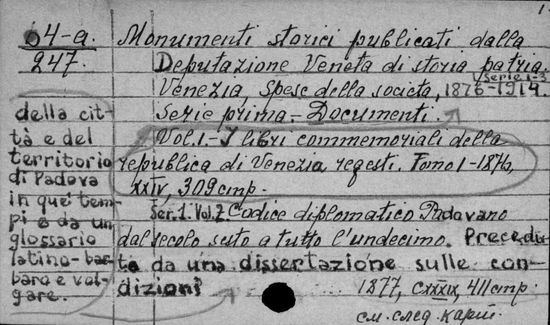 1.
04-a.
247.
Monumenti storici publicati dalla
Deputazione Veneta di storia patria.
Serie 1-3
Venezia, Spese della societa, 1876-1914.
Serie prima - Documenti.
Vol. 1.- I libri commemoriali della
republica di Venezia regesti. Tomo I - 1876,
XXIV, 309 стр.
Ser. 1. Vol. 2. Codice diplomatico Padovano
dal secolo sesto a tutto l'undecimo. Precedu-
ta da una dissertazione sulle con-
dizioni
della cit-
tà e del
territorio
di Padova
in que' tem-
pi e da un
glossario
latino-bar-
baro e vol-
gare.
1877, CXXXIX, 411 стр.
см. след. карт.